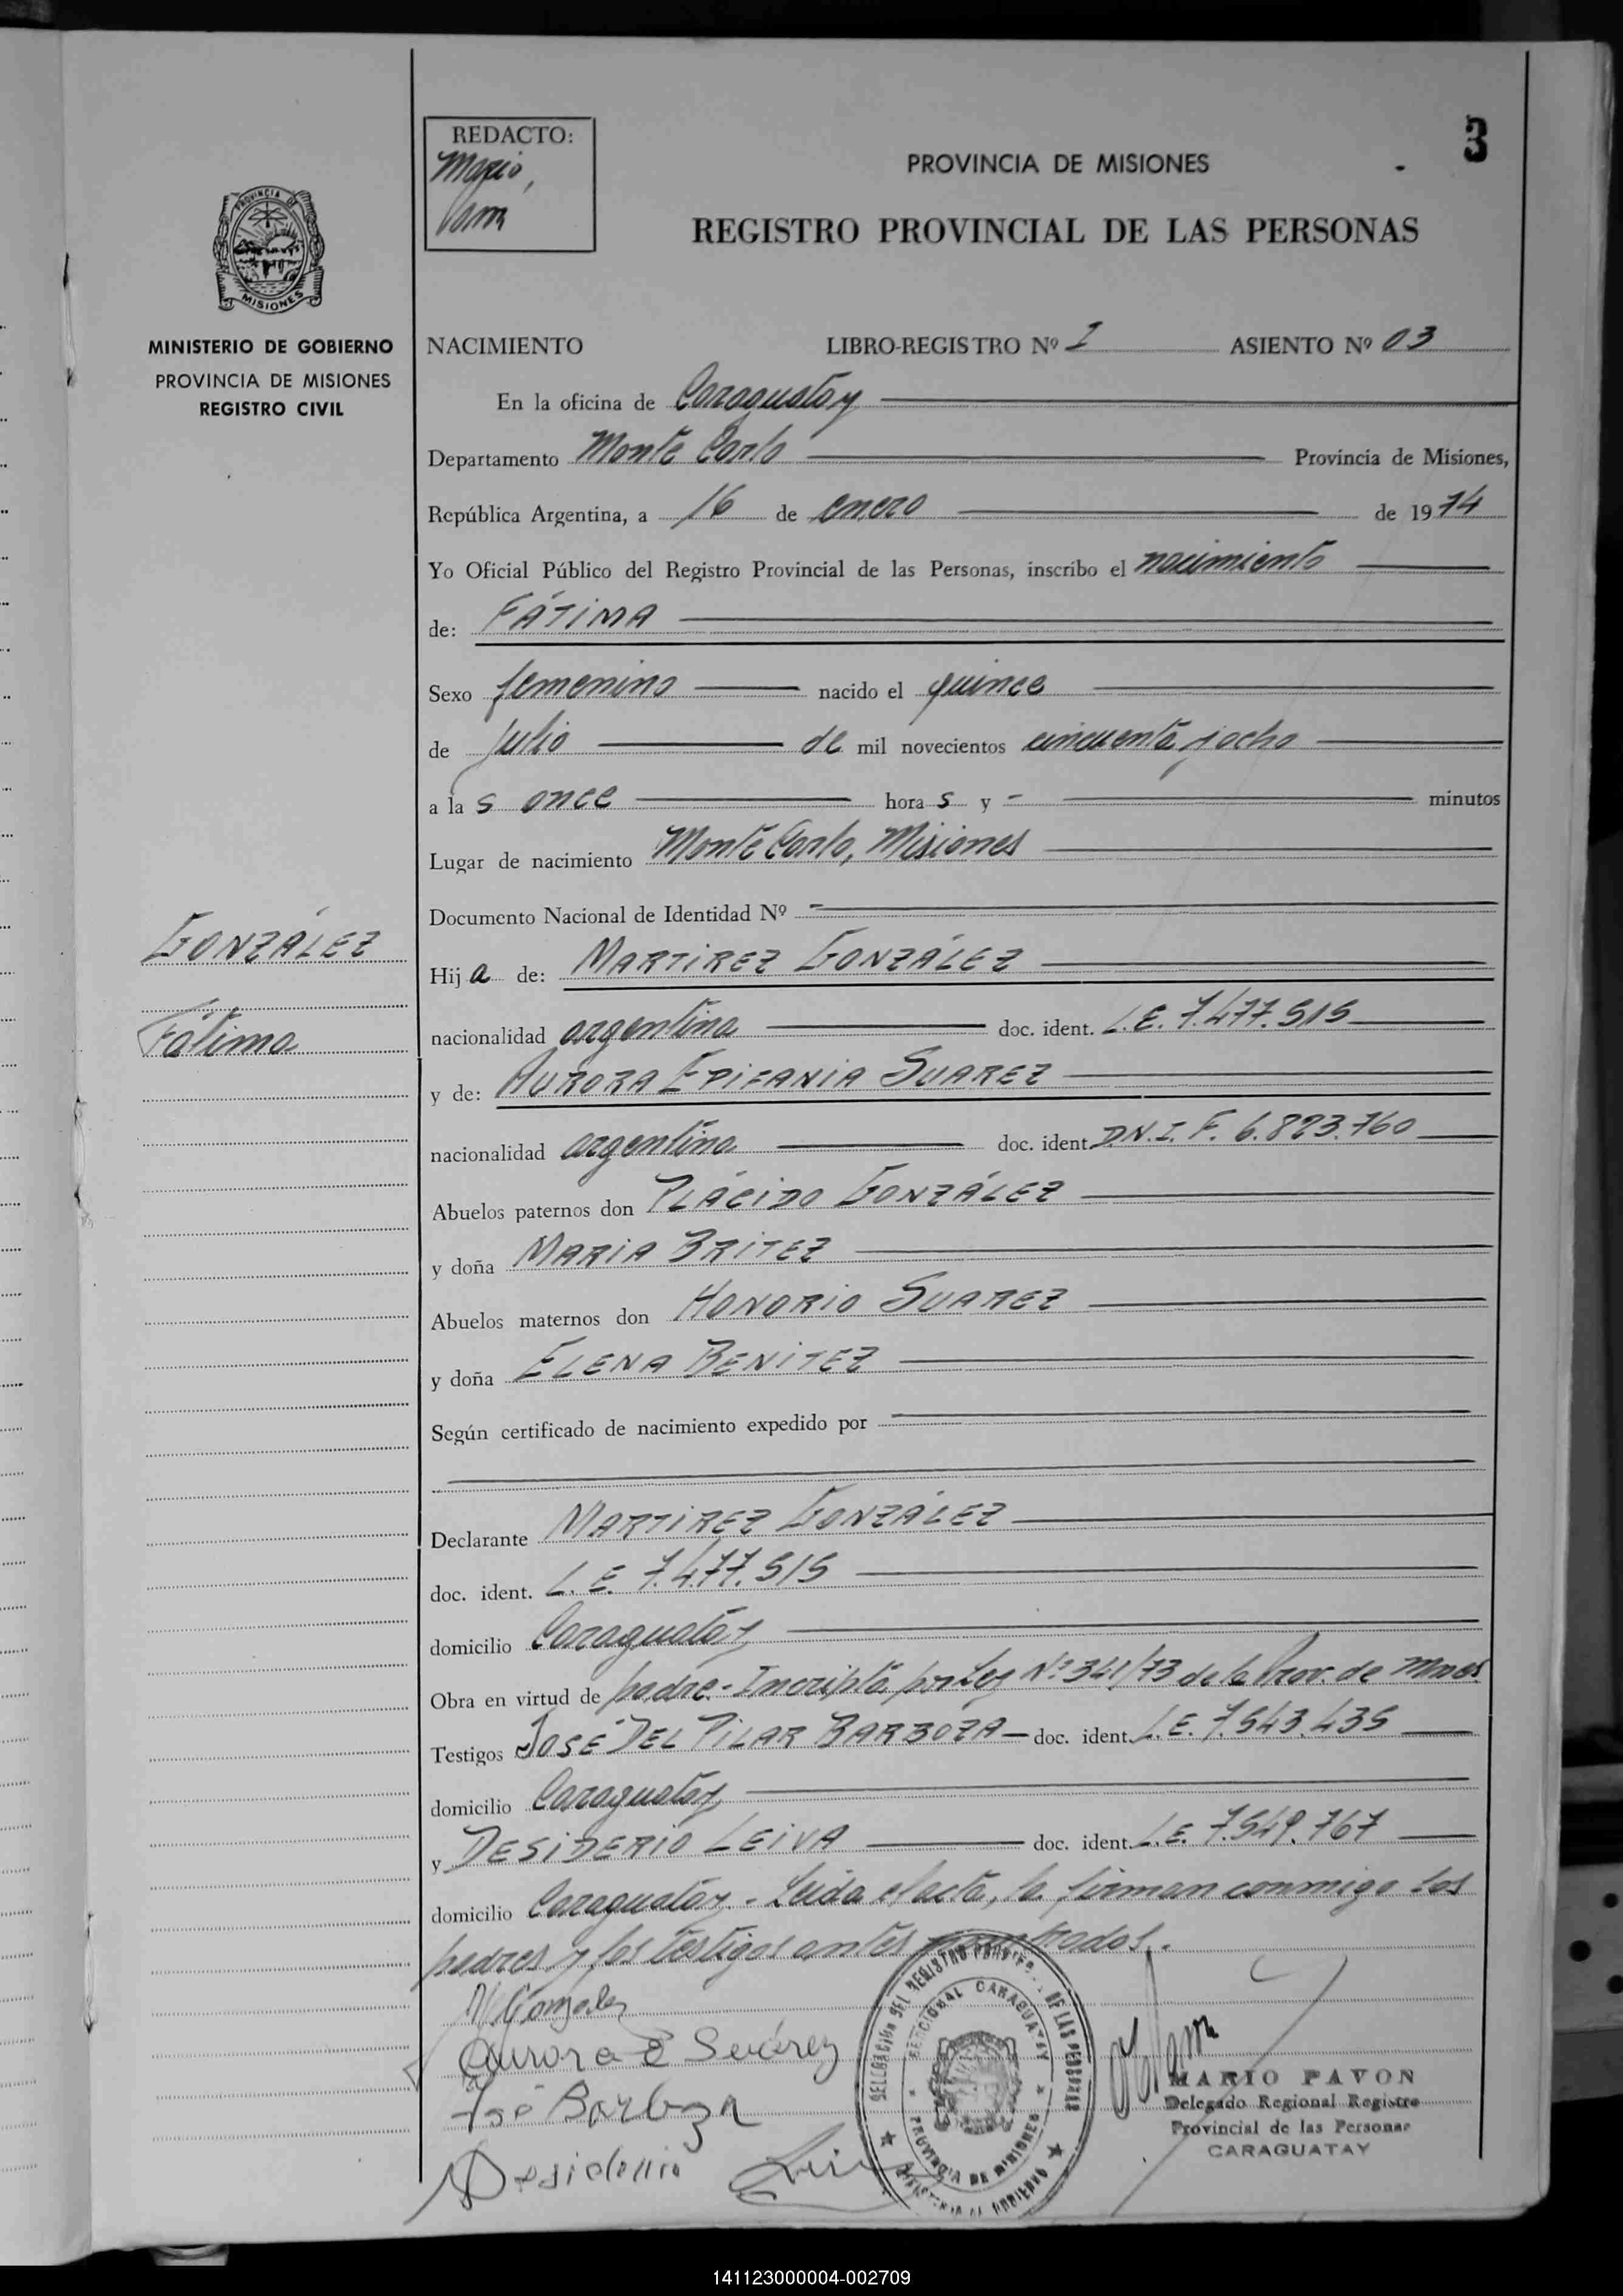 3
REDACTO:
Mario,
PROVINCIA DE MISIONES
REGISTRO PROVINCIAL DE LAS PERSONAS
PROVINCIA DE
MISIONES
MINISTERIO DE GOBIERNO
PROVINCIA DE MISIONES
REGISTRO CIVIL
NACIMIENTO LIBRO-REGISTRO Nº I ASIENTO Nº 03
En la oficina de Caraguatay
Departamento Monte Carlo Provincia de Misiones,
República Argentina, a 16 de enero de 1974
Yo Oficial Público del Registro Provincial de las Personas, inscribo el nacimiento
de: FÁTIMA
Sexo femenino nacido el quince
de julio de mil novecientos cincuenta y ocho
a las once horas y - minutos
Lugar de nacimiento Monte Carlo, Misiones
Documento Nacional de Identidad Nº -
GONZÁLEZ
Fátima
Hija de: MARTIREZ GONZÁLEZ
nacionalidad argentina doc. ident. L.E. 7.477.515
y de: AURORA EPIFANIA SUAREZ
nacionalidad argentina doc. ident. D.N.I. F. 6.823.760
Abuelos paternos don PLÁCIDO GONZÁLEZ
y doña MARIA BRITEZ
Abuelos maternos don HONORIO SUAREZ
y doña ELENA BENITEZ
Según certificado de nacimiento expedido por
Declarante MARTIREZ GONZÁLEZ
doc. ident. L.E. 7.477.515
domicilio Caraguatay
Obra en virtud de padre.- Inscripta por Ley Nº 341/73 de la Prov. de Mnes.
Testigos JOSÉ DEL PILAR BARBOZA - doc. ident. L.E. 7.543.435
domicilio Caraguatay
y DESIDERIO LEIVA doc. ident. L.E. 7.549.767
domicilio Caraguatay.- Leida el acta, la firman conmigo los
padres y los testigos antes
M Gonzalez
Aurora E Suárez
José Barboza
Desiderio Leiva
DELEGACIÓN DEL REGISTRO DE LAS PERSONAS
SECCIONAL CARAGUATAY
PROVINCIA DE MISIONES
MINISTERIO DE GOBIERNO
MARIO PAVON
Delegado Regional Registro
Provincial de las Personas
CARAGUATAY
141123000004-002709